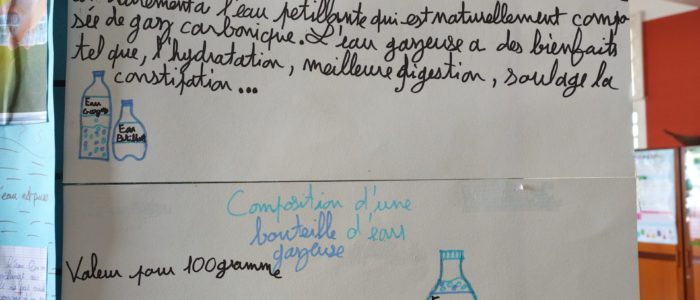 à l'eau petillante qui est naturellement compo
sée de gaz carbonique. L'eau gazeuse a des bienfaits
tel que, l'hydratation, meilleure digestion, soulage la
constipation...
Eau
Gazeuse
Eau
Petillante
Composition d'une
bouteille d'eau
gazeuse
Valeur pour 100gramme